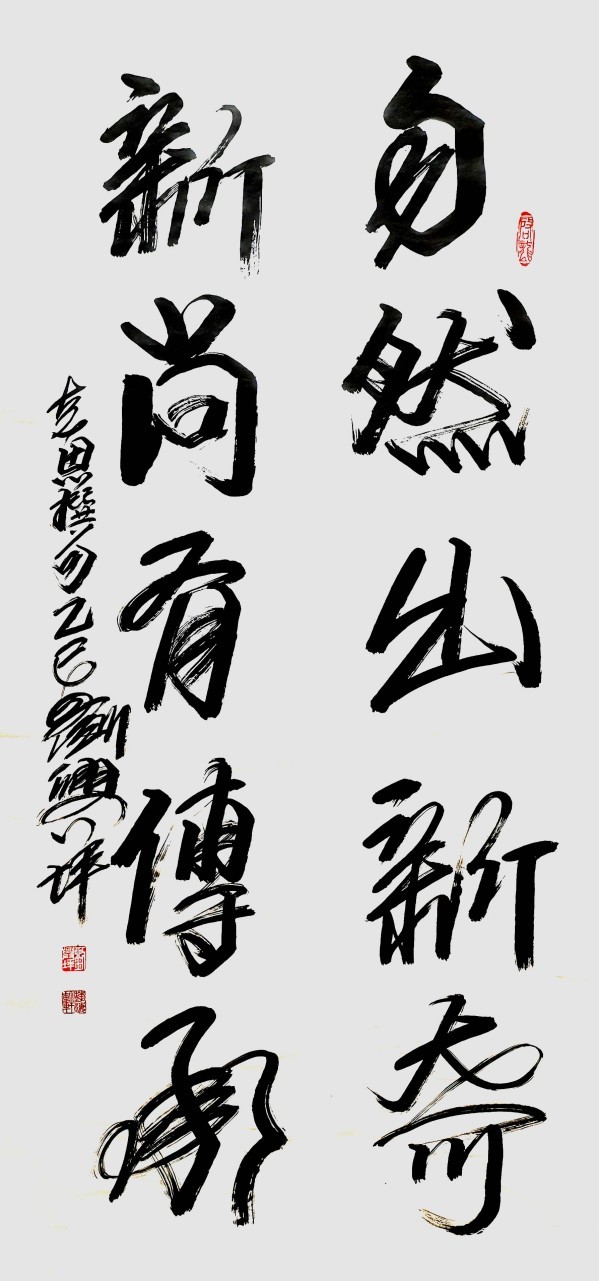 自然出新奇
新尚有傳承
思撰句乙巳劉興